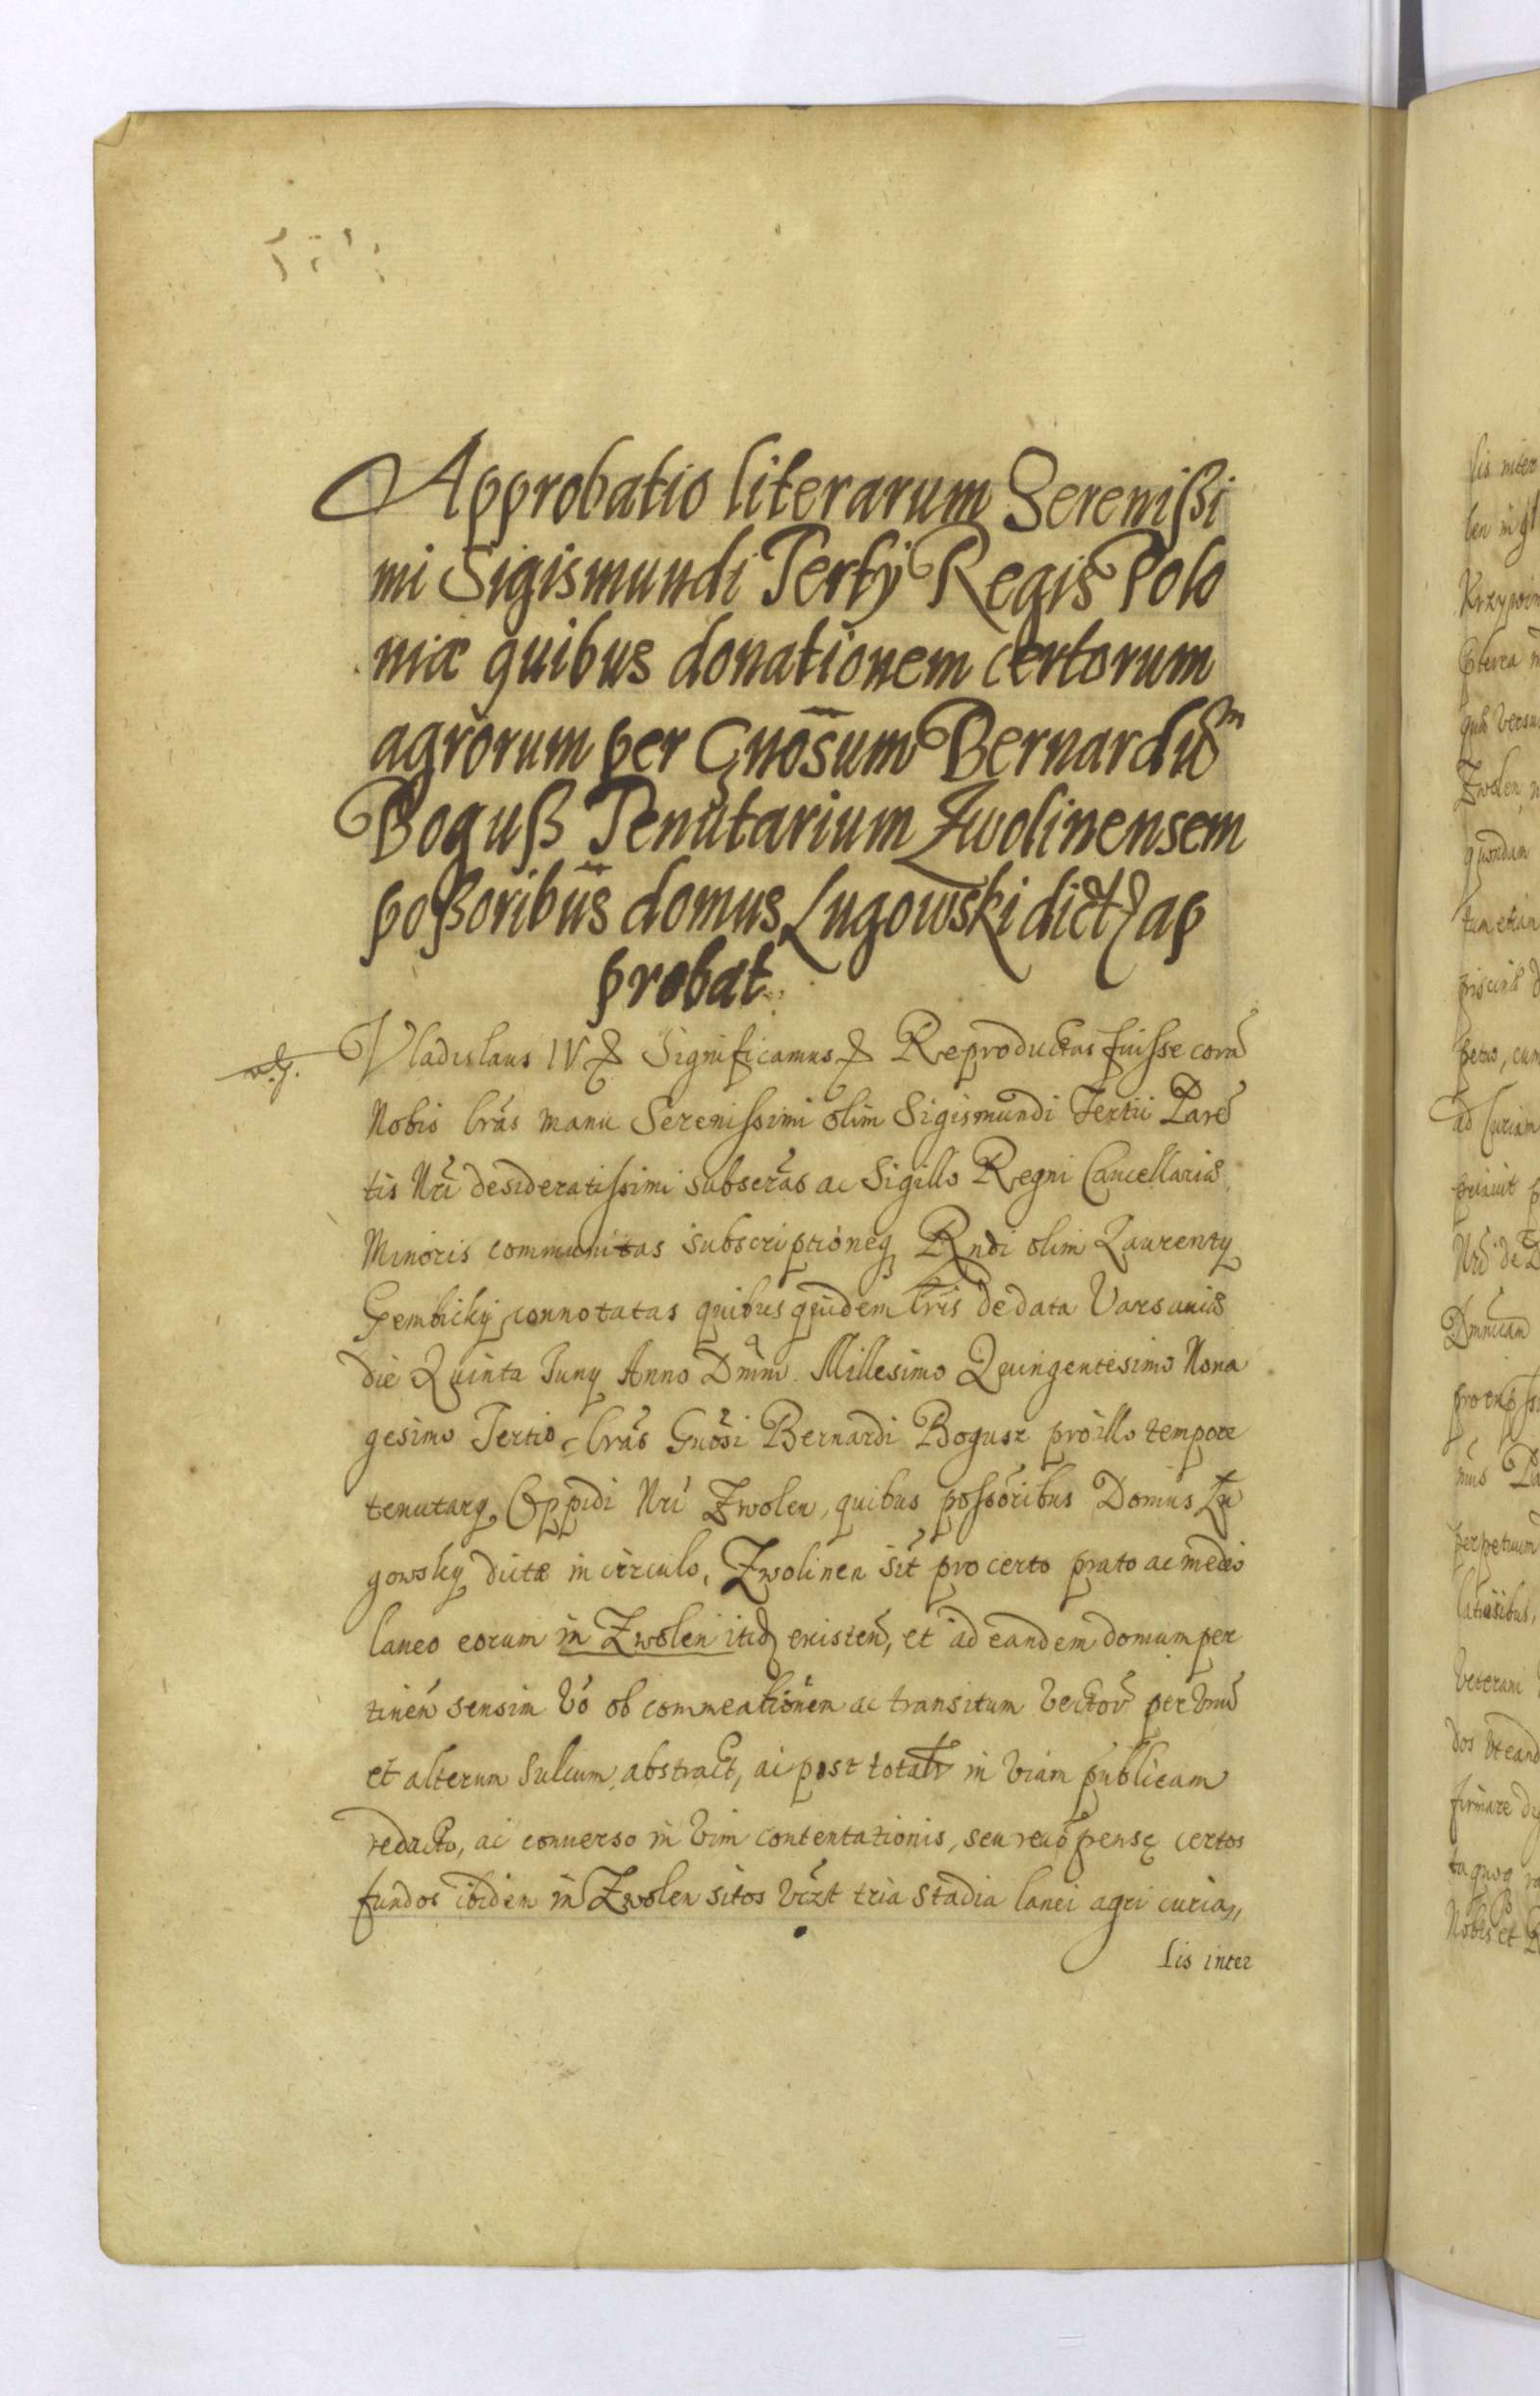 Approbatio literarum Serenißi
mi Sigismundi Tertÿ Regis Polo
niæ quibus donationem certorum
agrorum per Gnõsum Bernardũm
Boguß Tenutarium Zwolinensem
poßoribũs domus Lugowski dict ap
probat.
Vladislaus IV Significamus Reproductas fuisse corã
Nobis lrãs manu Serenissimi olim Sigismundi Tertii Parẽ
tis Nrĩ desideratissimi subscrãs ac Sigillo Regni Cancellariæ
Minoris communitas subscriptioneq Rndi olim Laurentÿ
Gembickÿ connotatas quibus quidem lrĩs de data Varsauiæ
die Quinta Junÿ Anno Dnĩni Millesimo Quingentesimo Nona
gesimo Tertio lrãs Gnõsi Bernardi Bogusz pro illo tempore
tenutarÿ Oppidi Nrĩ Zwolen, quibus possõribus Domus Lu
gowskÿ dictæ in circulo, Zwolinen sit pro certo prato ac medio
laneo eorum in Zwolen itid existeñ, et ad eandem domum per
tineñ sensim võ ob commeationem ac transitum vector per vnũ
et alterum sulcum, abstract, ac post totalr in viam publicam
redacto, ac conuerso in vim contentationis, seu recõpensę certos
fundos ibidem in Zwolen sitos vizt tria stadia lanei agri curia„
lis inter
lis inter
Krzypom
Zwolen
quondam
tum etiam
ad Curiam
perpetuum
firmare
Nobis et